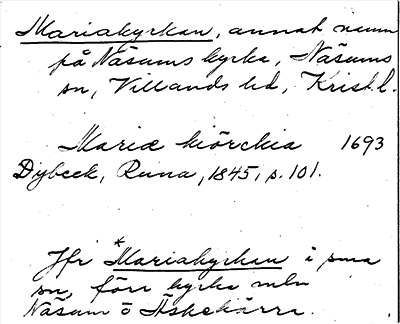 Mariakyrkan, annat namn
på Näsums kyrka, Näsums
sn, Villands hd, Krist. l.
Mariæ kiörckia 1693
Dybeck, Runa, 1845, s. 101.
Jfr *Mariakyrkan i sma
sn, förr kyrka mln
Näsum o Äskekärr.